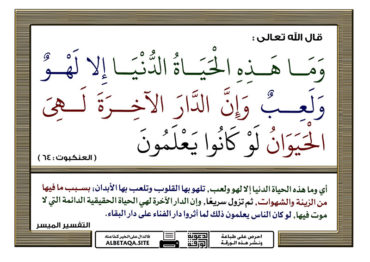 قال الله تعالى :
وَمَـا هَـذِهِ الْحَيَـاةُ الدُّنْيَـا إِلا لَهْـوٌ
وَلَعِـبٌ وَإِنَّ الدَّارَ الآخِـرَةَ لَـهِيَ
الْحَيَوَانُ لَوْ كَانُوا يَعْلَمُونَ
( العنكبوت : ٦٤ )
أي وما هذه الحياة الدنيا إلا لهو ولعب، تلهو بها القلوب وتلعب بها الأبدان؛ بسبب ما فيها
من الزينة والشهوات، ثم تزول سريعًا، وإن الدار الآخرة لهي الحياة الحقيقية الدائمة التي لا
موت فيها، لو كان الناس يعلمون ذلك لما آثروا دار الفناء على دار البقاء.
التفسير الميسر
احرص على طباعة
ونشر هذه الورقة
فالدال على الخير كفاعله
ALBETAQA.SITE